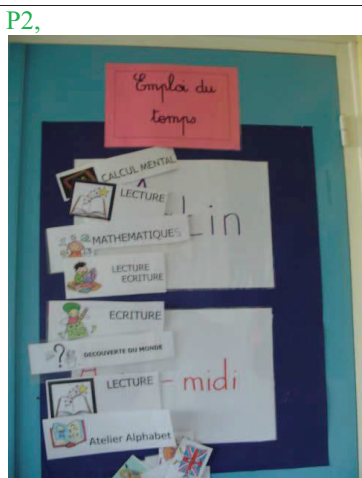 P2,
Emploi du
temps
CALCUL MENTAL
LECTURE
MATHEMATIQUES
LECTURE
ECRITURE
ECRITURE
? DECOUVERTE DU MONDE
LECTURE
- midi
Atelier Alphabet